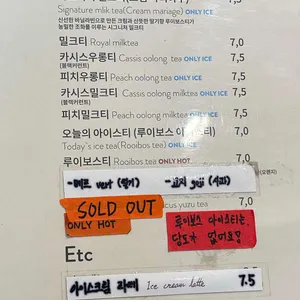 Signature milk tea(Cream manage) ONLY ICE
밀크티 Royal milktea 7,0
카시스우롱티 Cassis oolong tea ONLY ICE 7,5
(블랙커런트)
피치우롱티 Peach oolong tea ONLY ICE 7,5
카시스밀크티 Cassis oolong milktea ONLY ICE 7,5
(블랙커런트)
피치밀크티 Peach oolong milktea ONLY ICE 7,5
오늘의 아이스티 (루이보스 아이스티) 7,0
Today's ice tea(Rooibos tea) ONLY ICE
루이보스티 Rooibos tea ONLY HOT 7,0
SOLD OUT
ONLY HOT
cus yuzu tea 7,5
루이보스 아이스티는
당도가 없어요!
Etc
아이스크림 라떼 Ice cream latte 7.5